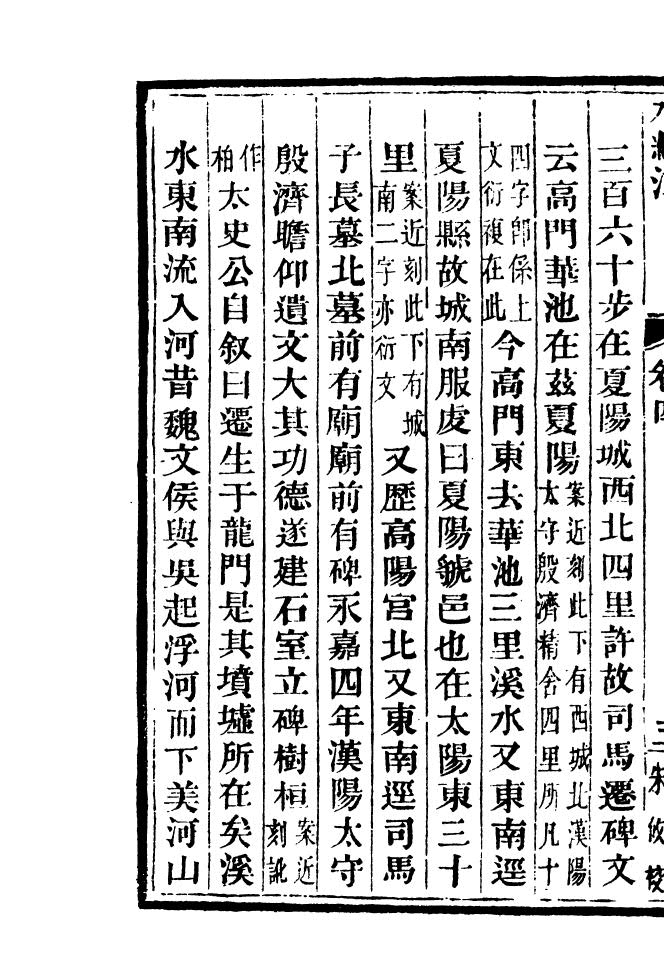 三百六十步在夏陽城西北四里許故司馬遷碑文
云高門華池在茲夏陽案近刻此下有西城北漢陽太守殷濟精舍四里所凡十
四字卽係上文衍複在此今高門東去華池三里溪水又東南逕
夏陽縣故城南服虔曰夏陽虢邑也在太陽東三十
里案近刻此下有城南二字亦衍文又歷高陽宮北又東南逕司馬
子長墓北墓前有廟廟前有碑永嘉四年漢陽太守
殷濟瞻仰遺文大其功德遂建石室立碑樹桓案近刻訛
作柏太史公自叙曰遷生于龍門是其墳墟所在矣溪
水東南流入河昔魏文侯與吳起浮河而下美河山